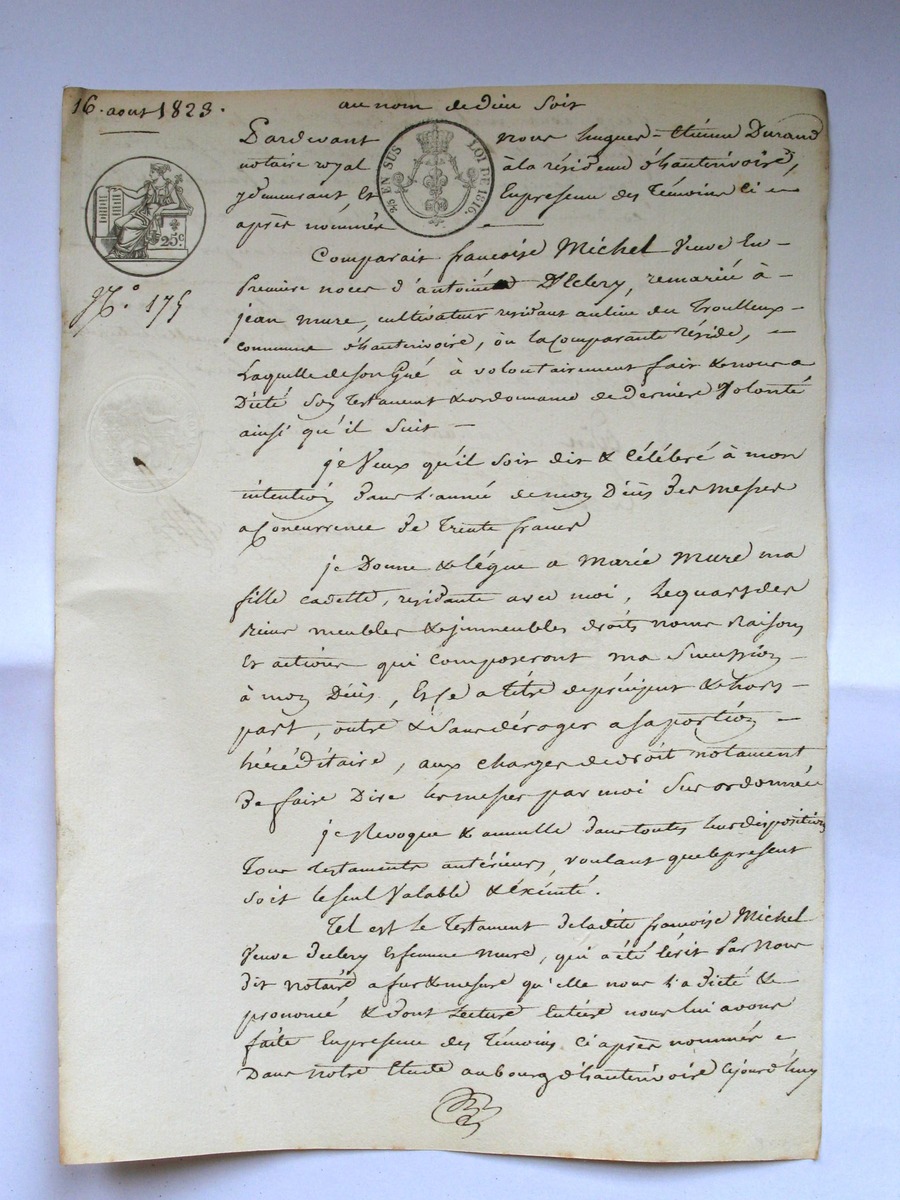 16. aout 1823.
au nom de dieu soit
Pardevant nous hugues-étienne Durand
notaire royal à la résidence d'hauterivoire,
y demeurant, Et En presence des Témoins ci
après nommés
25 EN SUS LOI DE 1816.
25c
N.° 175
Comparait françoise Michel Veuve En
Premiere noces d'antoine D'clery, remariée à
jean mure, cultivateur residant au lieu du Troulleux
commune d'hauterivoire, où la comparante réside,
Laquelle de son Gré à volontairement fait & nous a
Dicté son Testament & ordonnance de derniere Volonté
ainsi qu'il suit
je Veux qu'il soit dit & Célébré à mon
intention dans l'année de mon Décès des messes
a Concurrence de Trente francs
je Donne & légue a Marie Mure ma
fille cadette, residante avec moi, Le quart des
Biens meubles & immeubles droits noms Raisons
Et actions qui composeront ma Succession
à mon Décès, Et Ce a titre de préciput & hors
part, outre & sans déroger a sa portion
héréditaire, aux charges de droit notament
de faire Dire les messes par moi Sus ordonnée
je Révoque & annulle dans toutes leurs dispositions
Tous testaments antérieurs, voulant que le present
soit le seul Valable & éxécuté.
Tel est le Testament de ladite françoise Michel
Veuve D'clery et femme mure, qui a été Ecrit Par Nous
dit notaire a fur & mesure qu'elle nous l'a dicté &
prononcé & dont Lecture Entière nous lui avons
faite En presence des Témoins Ci après nommés
Dans Notre Etude au bourg d'hauterivoire Cejourd'huy